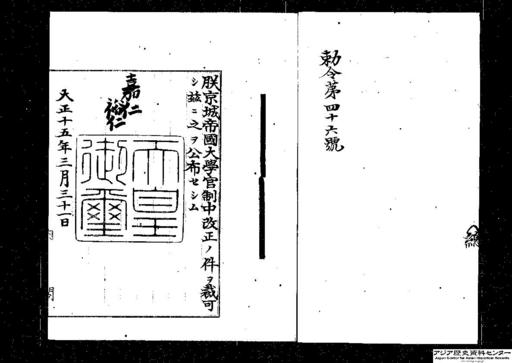 勅令第四十六號
朕京城帝國大學官制中改正ノ件ヲ裁可
シ茲ニ之ヲ公布セシム
嘉仁
裕仁
天皇
御璽
大正十五年三月三十一日
内
閣
アジア歴史資料センター
Japan Center for Asian Historical Records